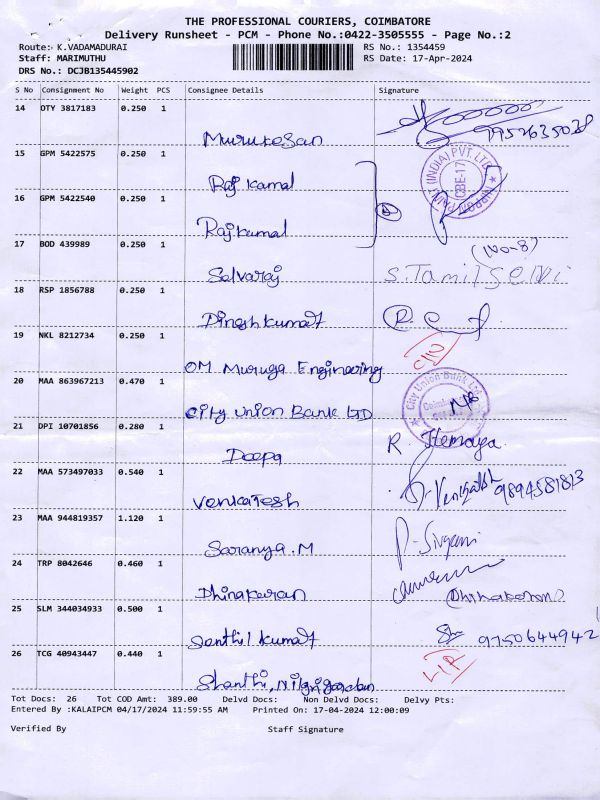 THE PROFESSIONAL COURIERS, COIMBATORE
Delivery Runsheet - PCM - Phone No.:0422-3505555 - Page No.:2
Route: K.VADAMADURAI
RS No.: 1354459
Staff: MARIMUTHU
RS Date: 17-Apr-2024
DRS No.: DCJB135445902
S No Consignment No Weight PCS Consignee Details Signature
14 OTY 3817183 0.250 1
Murukesan 9952635038
15 GPM 5422575 0.250 1
Raj Kamal
NIPPON PAINT (INDIA) PVT. LTD. CBE-17
16 GPM 5422540 0.250 1
Rajkumal
17 BOD 439989 0.250 1
(No-8)
Selvaraj S.Tamilselvi
18 RSP 1856788 0.250 1
Dineshkumar
19 NKL 8212734 0.250 1
OM Muruga Engineering
20 MAA 863967213 0.470 1
City Union Bank LTD
City Union Bank Ltd
21 DPI 10701856 0.280 1
Deepa R. Hemaya.
22 MAA 573497033 0.540 1
Venkatesh Venkatesh 9894581813
23 MAA 944819357 1.120 1
Saranya.M P-Sivgami
24 TRP 8042646 0.460 1
Dhinakaran
25 SLM 344034933 0.500 1
Senthil kumar 9750644942
26 TCG 40943447 0.440 1
Shanthi,
Tot Docs: 26 Tot COD Amt: 389.00 Delvd Docs: Non Delvd Docs: Delvy Pts:
Entered By :KALAIPCM 04/17/2024 11:59:55 AM Printed On: 17-04-2024 12:00:09
Verified By Staff Signature